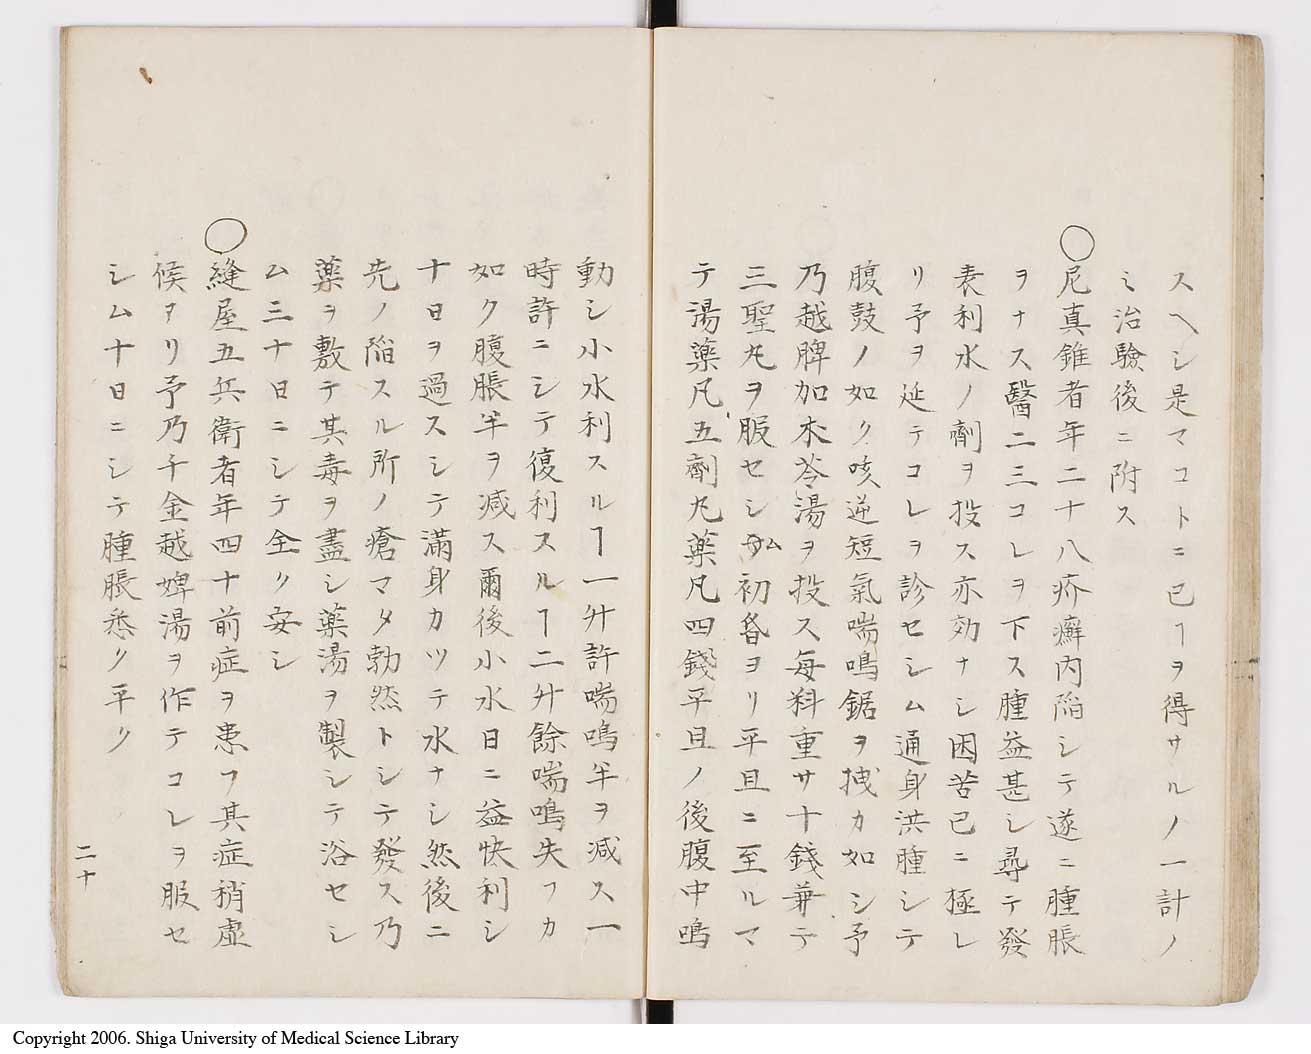 スヘシ是マコトニ已ヿヲ得サルノ一計ノ
ミ治驗後ニ附ス
○尼真錐者年二十八疥癬内陥シテ遂ニ腫脹
ヲナス醫二三コレヲ下ス腫益甚シ尋テ發
表利水ノ劑ヲ投ス亦効ナシ困苦已ニ極レ
リ予ヲ延テコレヲ診セシム通身洪腫シテ
腹鼓ノ如ク咳逆短氣喘鳴鋸ヲ拽カ如シ予
乃越脾加朮苓湯ヲ投ス毎料重サ十錢兼テ
三聖丸ヲ服セシム初昏ヨリ平旦ニ至ルマ
テ湯藥凡五劑丸藥凡四錢平旦ノ後腹中鳴
動シ小水利スルヿ一升許喘鳴半ヲ减ス一
時許ニシテ復利スルヿ二升餘喘鳴失フカ
如ク腹脹半ヲ减ス爾後小水日ニ益快利シ
十日ヲ過スシテ滿身カツテ水ナシ然後ニ
先ノ陥スル所ノ瘡マタ勃然トシテ發ス乃
薬ヲ敷テ其毒ヲ盡シ薬湯ヲ製シテ浴セシ
ム三十日ニシテ全ク安シ
○縫屋五兵衛者年四十前症ヲ患フ其症稍虚
候ヲリ予乃千金越婢湯ヲ作テコレヲ服セ
シム十日ニシテ腫脹悉ク平ク
二十
Copyright 2006. Shiga University of Medical Science Library